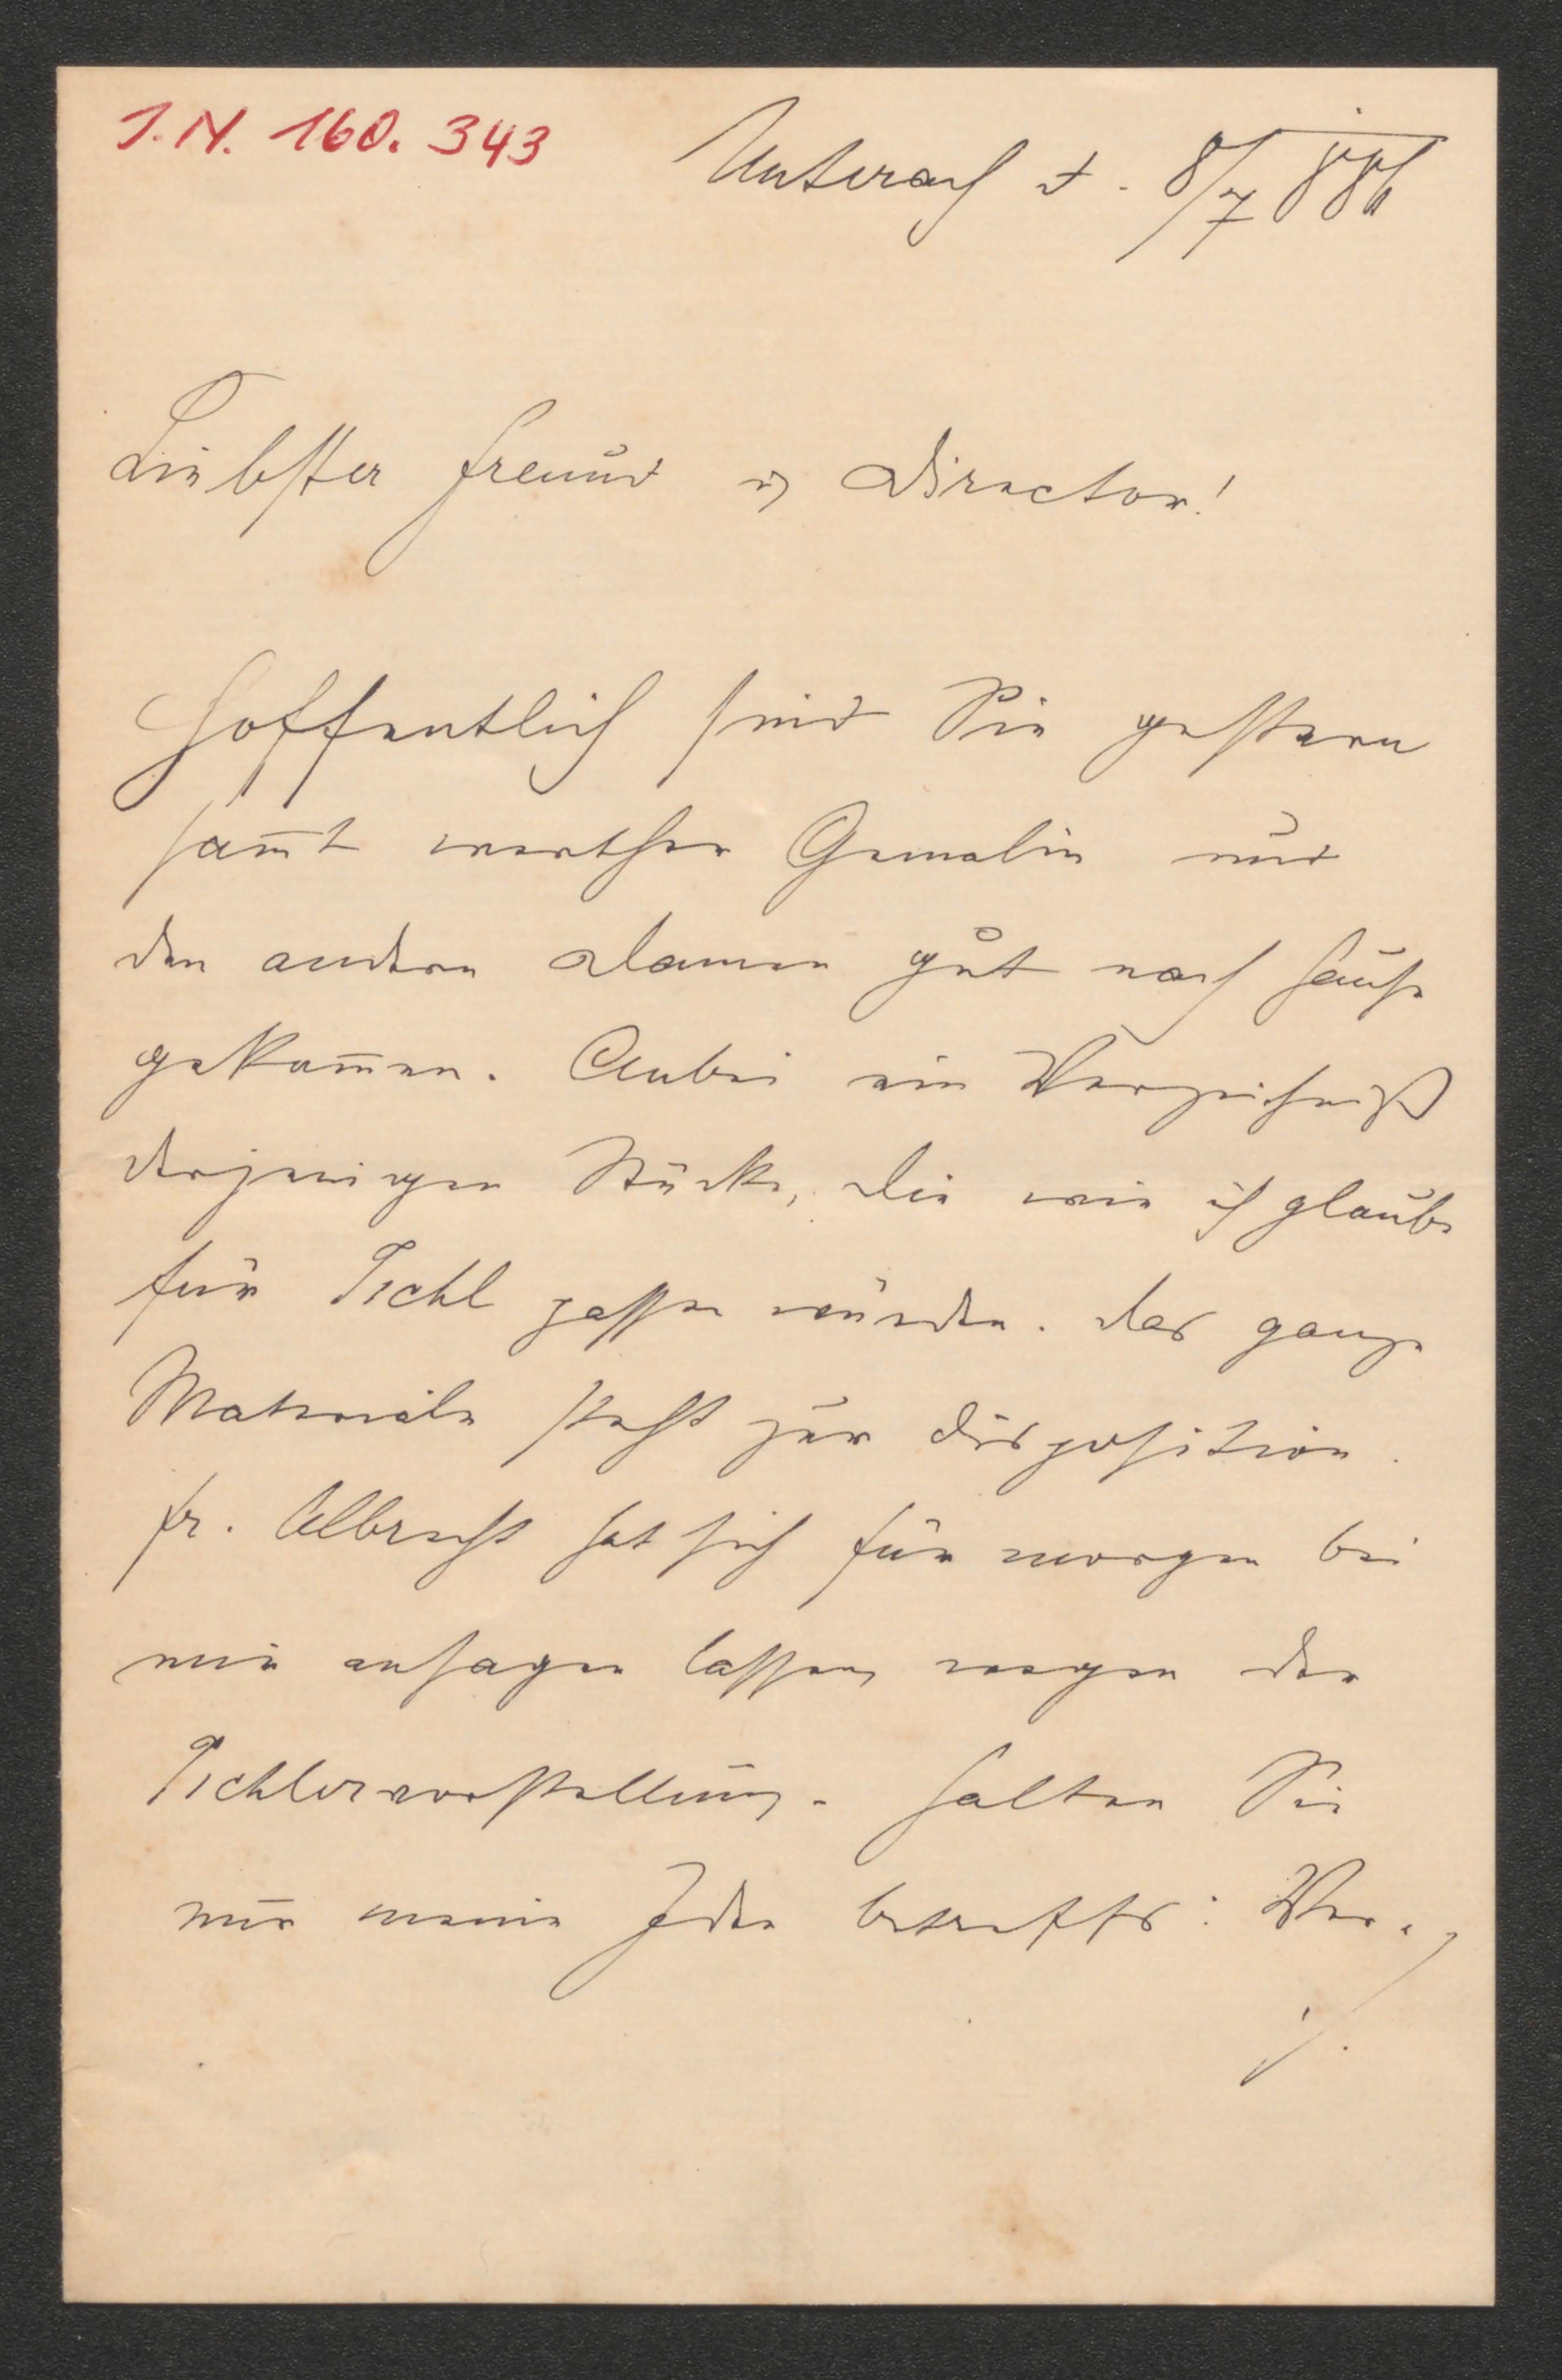 I.N. 160.343
Unterach d. 8/7 886
Liebster Freund u. Director!
Hoffentlich sind Sie gestern
sam̅t werther Gemalin und
den andern Damen gut nach Hause
gekom̅en. Anbei ein Verzeichniß
derjenigen Stücke, die wie ich glaube
für Ischl passen würden. Das ganze
Materiale steht zur Disposition.
Fr. Albrecht hat sich für morgen bei
mir ansagen lassen, wegen der
Ischlervorstellung. Halten Sie
nur meine Idee betreffs: Ver-
./.